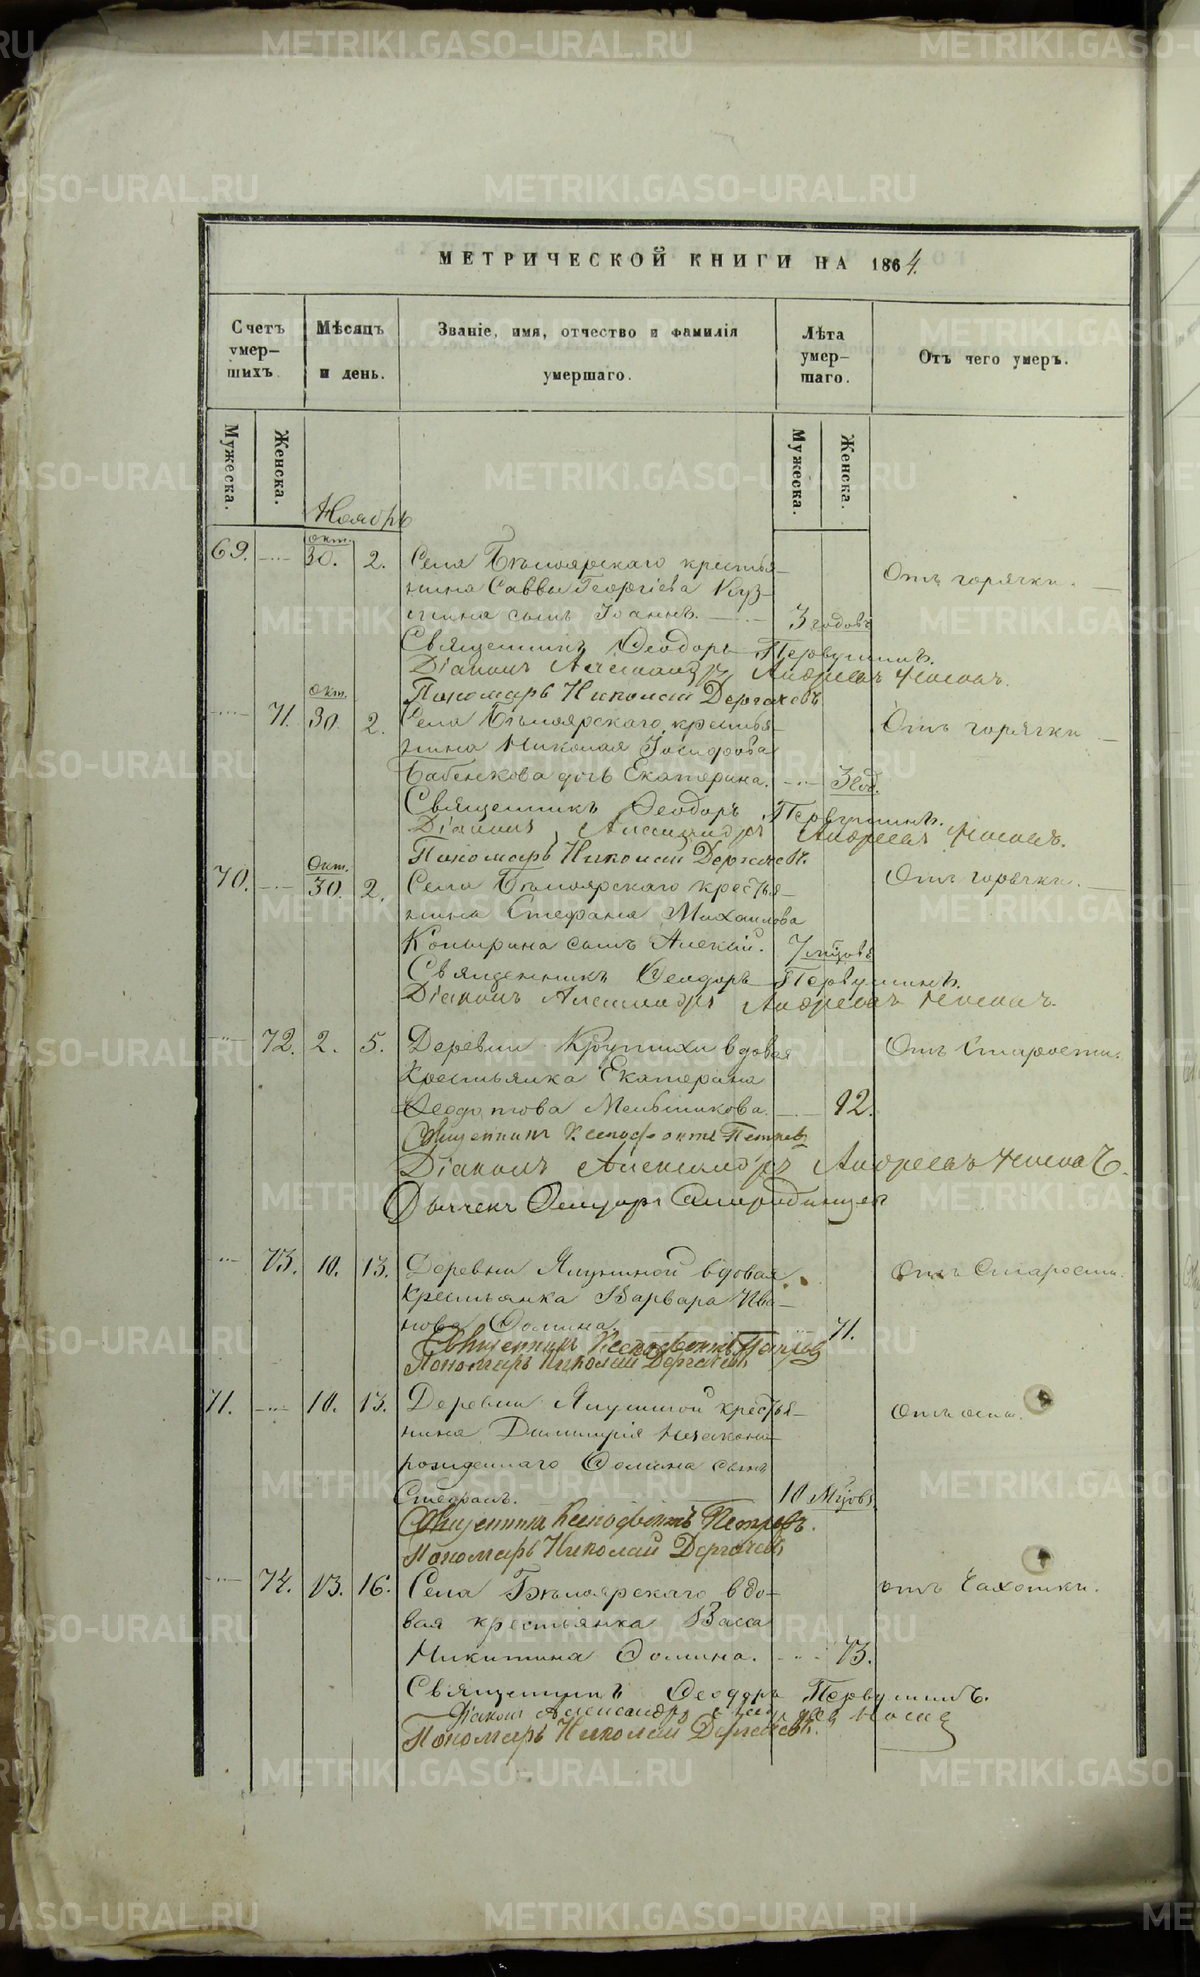 МЕТРИЧЕСКОЙ КНИГИ НА 1864.
Счетъ умер-шихъ.
Мѣсяцъ и день.
Званіе, имя, отчество и фамилія умершаго.
Лѣта умер-шаго.
Отъ чего умеръ.
Мужеска.
Женска.
Мужеска.
Женска.
Ноябрь
69. окт. 30. 2. Села Бѣлоярскаго крестья-
нина Саввы Георгіева Куз-
мина сынъ Іоаннъ. 3 годовъ Отъ горячки.
Священникъ Ѳеодоръ Первушинъ.
Діаконъ Александръ Андреевъ
Пономарь Николай Дергачевъ
71. окт. 30. 2. Села Бѣлоярскаго крестья-
нина Николая Іосифова
Бабенкова дочь Екатерина. 3 год. Отъ горячки
Священникъ Ѳеодоръ Первушинъ.
Діаконъ Александръ Андреевъ
Пономарь Николай Дергачевъ.
70. Окт. 30. 2. Села Бѣлоярскаго крестья-
нина Стефана Михаилова
Копырина сынъ Алексій. 7 мѣсцовъ Отъ горячки.
Священникъ Ѳеодоръ Первушинъ.
Діаконъ Александръ Андреевъ
72. 2. 5. Деревни Крутихи вдовая
крестьянка Екатерина
Ѳеодотова Меньшикова. 92. Отъ старости.
Священникъ Ксенофонтъ Петровъ
Діаконъ Александръ Андреевъ
Дьячекъ
73. 10. 13. Деревни Ялуниной вдовая
крестьянка Варвара Ива-
нова Ѳомина. 71. Отъ Старости.
Священникъ Ксенофонтъ Петровъ
Пономарь Николай Дергачевъ
71. 10. 13. Деревни Ялуниной крестья-
нина Димитрія незаконо-
рожденнаго Ѳомина сынъ
Стефанъ. 10 Мѣсцовъ. Отъ оспы.
Священникъ Ксенофонтъ Петровъ.
Пономарь Николай Дергачевъ
74. 13. 16. Села Бѣлоярскаго вдо-
вая крестьянка Васса
Никитина Ѳомина. 73. отъ Чахотки.
Священникъ Ѳеодоръ Первушинъ.
Діаконъ Александръ
Пономарь Николай Дергачевъ.
METRIKI.GASO-URAL.RU